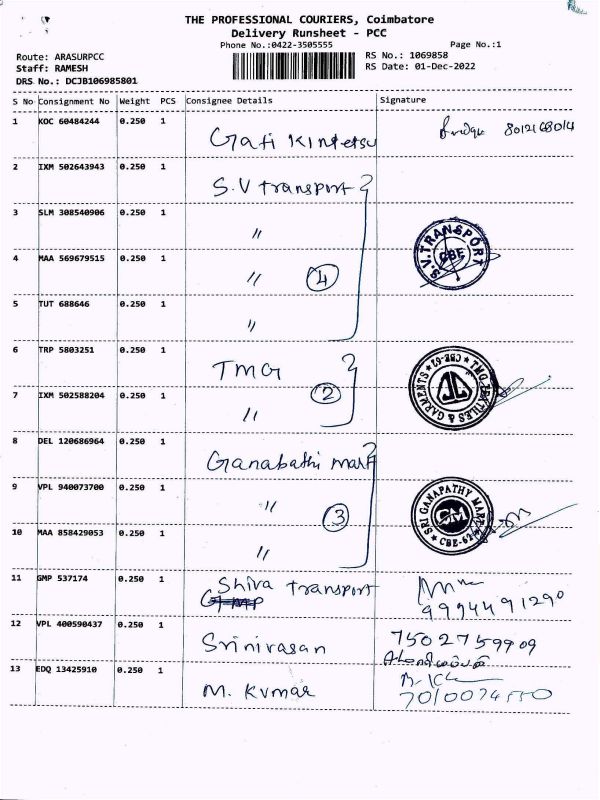 THE PROFESSIONAL COURIERS, Coimbatore
Delivery Runsheet - PCC
Phone No.:0422-3505555
Page No.:1
Route: ARASURPCC
Staff: RAMESH
DRS No.: DCJB106985801
RS No.: 1069858
RS Date: 01-Dec-2022
S No Consignment No Weight PCS Consignee Details Signature
1 KOC 60484244 0.250 1 Gati Kintetsu
2 IXM 502643943 0.250 1 S.V transport
3 SLM 308540906 0.250 1 "
4 MAA 569679515 0.250 1 " 4
5 TUT 688646 0.250 1 "
S.V.TRANSPORT
CBE
6 TRP 5803251 0.250 1 TMG
7 IXM 502588204 0.250 1 " 2
TMG TEXTILES & GARMENTS CBE-62
8 DEL 120686964 0.250 1 Ganabathi mart
9 VPL 940073700 0.250 1 "
10 MAA 858429053 0.250 1 " 3
SRI GANAPATHY MART
CBE-62
11 GMP 537174 0.250 1 Shiva transport
9994491290
12 VPL 400590437 0.250 1 Srinivasan 7502759909
13 EDQ 13425910 0.250 1 M. Kumar
7010074550